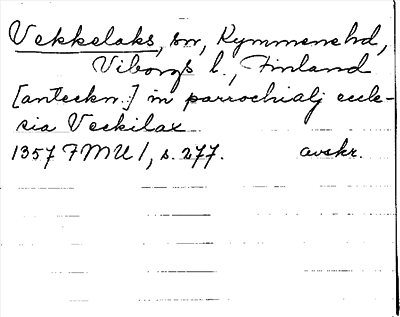 Vekkelaks, sn, Kymmene hd,
Viborgs l., Finland
[anteckn.] in parrochialj eccle-
sia Veckilax
1357 FMU 1, s. 277. avskr.